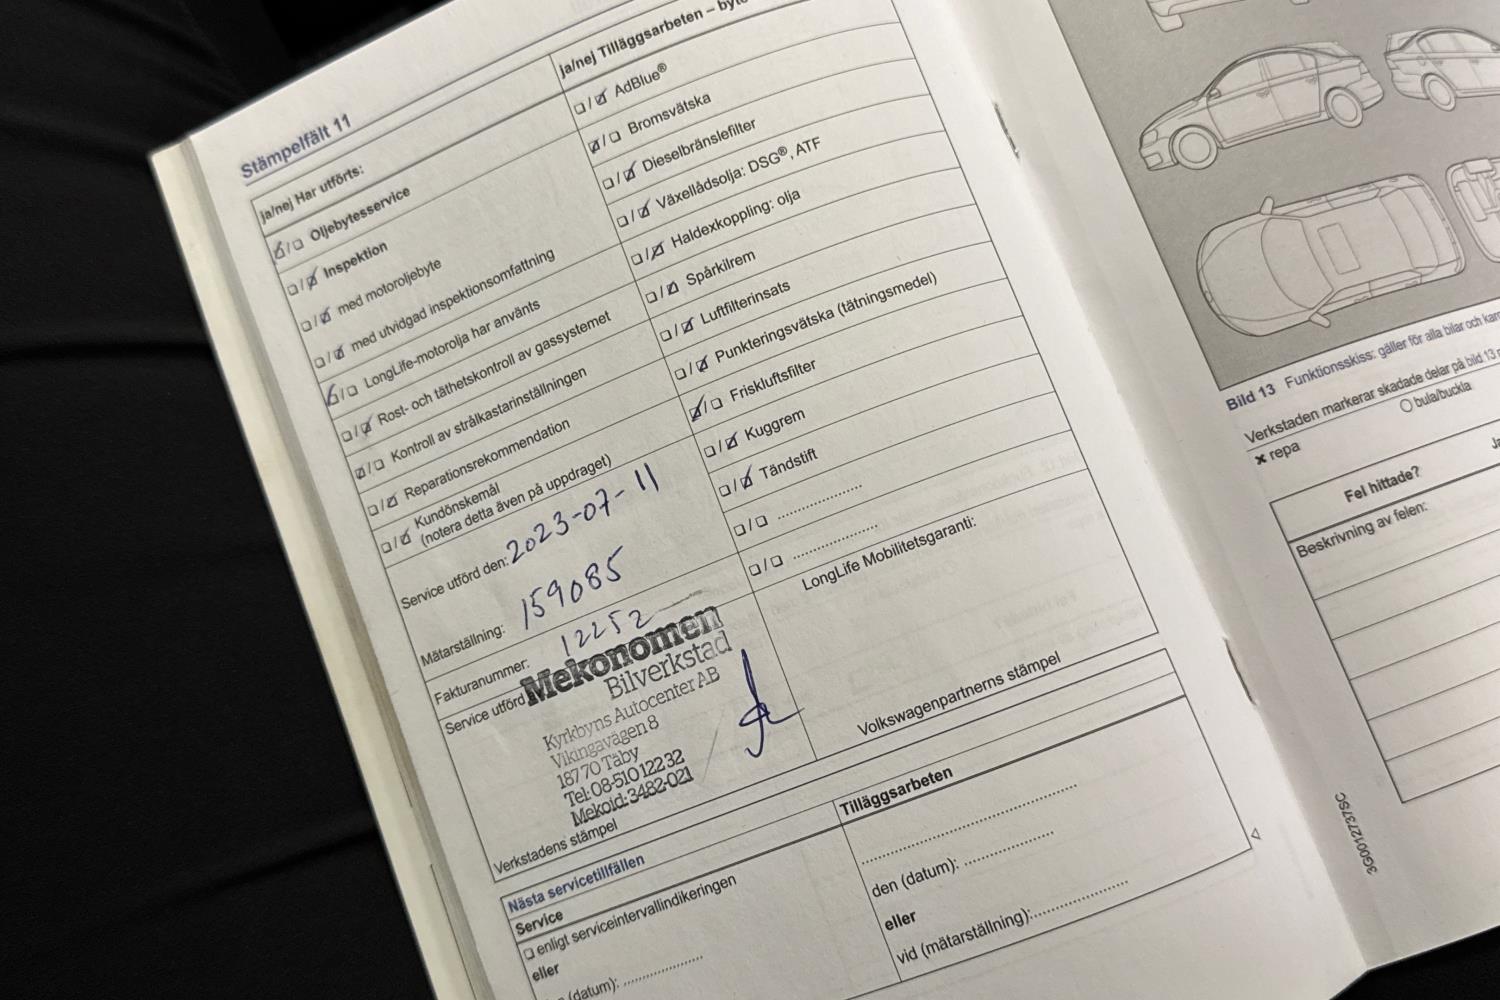 Stämpelfält 11
ja/nej Har utförts:
☑/☐ Oljebytesservice
☐/☑ Inspektion
☐/☑ med motoroljebyte
☐/☑ med utvidgad inspektionsomfattning
☑/☐ LongLife-motorolja har använts
☐/☑ Rost- och täthetskontroll av gassystemet
☑/☐ Kontroll av strålkastarinställningen
☐/☑ Reparationsrekommendation
☐/☑ Kundönskemål
(notera detta även på uppdraget)
Service utförd den: 2023-07-11
Mätarställning: 159085
Fakturanummer: 12252
Service utförd
Mekonomen
Bilverkstad
Kyrkbyns Autocenter AB
Vikingavägen 8
187 70 Täby
Tel: 08-510 122 32
Mekoid: 3482-021
Verkstadens stämpel
ja/nej Tilläggsarbeten –
☐/☑ AdBlue®
☑/☐ Bromsvätska
☐/☑ Dieselbränslefilter
☐/☑ Växellådsolja: DSG®, ATF
☐/☑ Haldexkoppling: olja
☐/☑ Spårkilrem
☐/☑ Luftfilterinsats
☐/☑ Punkteringsvätska (tätningsmedel)
☑/☐ Friskluftsfilter
☐/☑ Kuggrem
☐/☑ Tändstift
☐/☐ ....................
☐/☐ ....................
LongLife Mobilitetsgaranti:
Volkswagenpartnerns stämpel
Nästa servicetillfällen
Service
☐ enligt serviceintervallindikeringen
eller
(datum): ....................
Tilläggsarbeten
..................................................
den (datum): ....................
eller
vid (mätarställning):....................
Bild 13 Funktionsskiss: gäller för alla bilar och
Verkstaden markerar skadade delar på bild 13
✖ repa ○ bula/buckla
Fel hittade?
Beskrivning av felen:
3G0012737SC